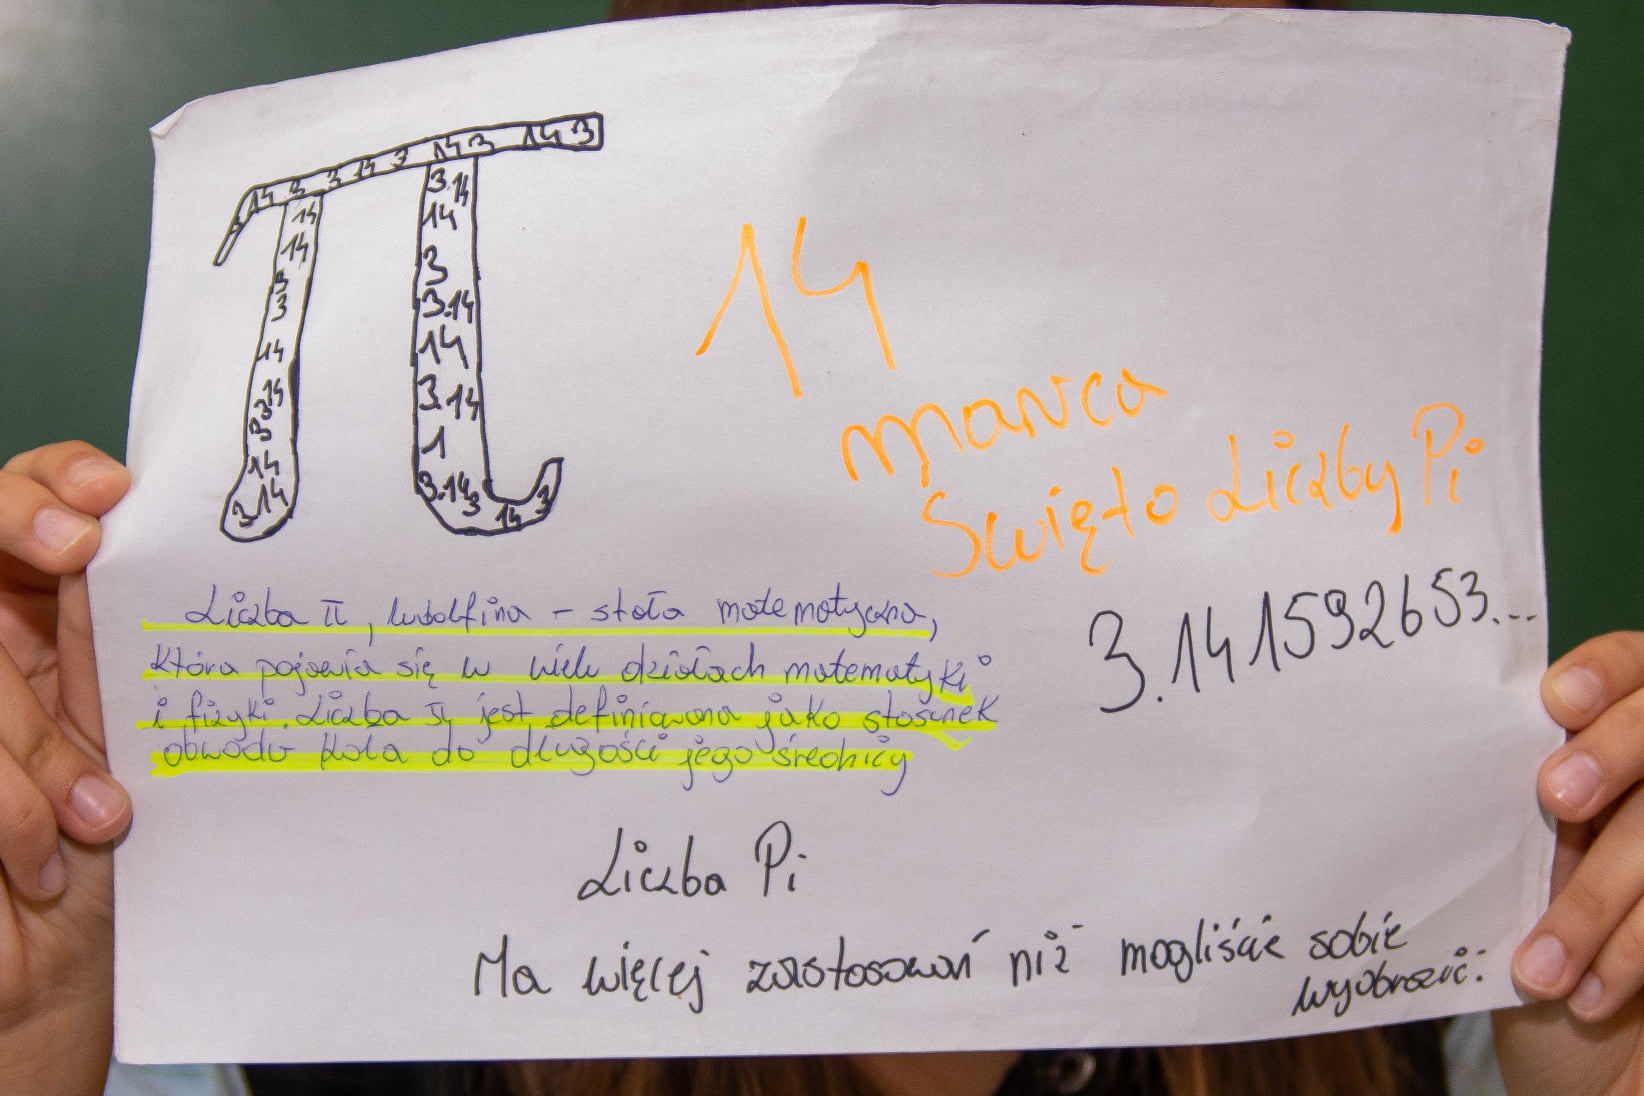 14 3 3 14 3 14 3 14 3
14
14
3
3
14
14
3
3
14
14
3
3.14
14
3
3.14
14
3.14
1
3.14
3
14
3
14
marca
Święto Liczby Pi
3.141592653...
Liczba π, ludolfina - stała matematyczna,
która pojawia się w wielu działach matematyki
i fizyki. Liczba π jest definiowana jako stosunek
obwodu koła do długości jego średnicy
Liczba Pi
Ma więcej zastosowań niż mogliście sobie
wyobrazić: